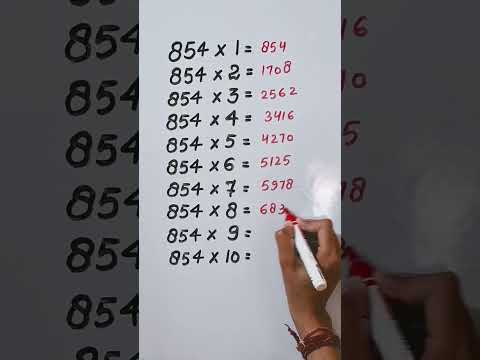 854 × 1 = 854
854 × 2 = 1708
854 × 3 = 2562
854 × 4 = 3416
854 × 5 = 4270
854 × 6 = 5125
854 × 7 = 5978
854 × 8 = 683
854 × 9 =
854 × 10 =